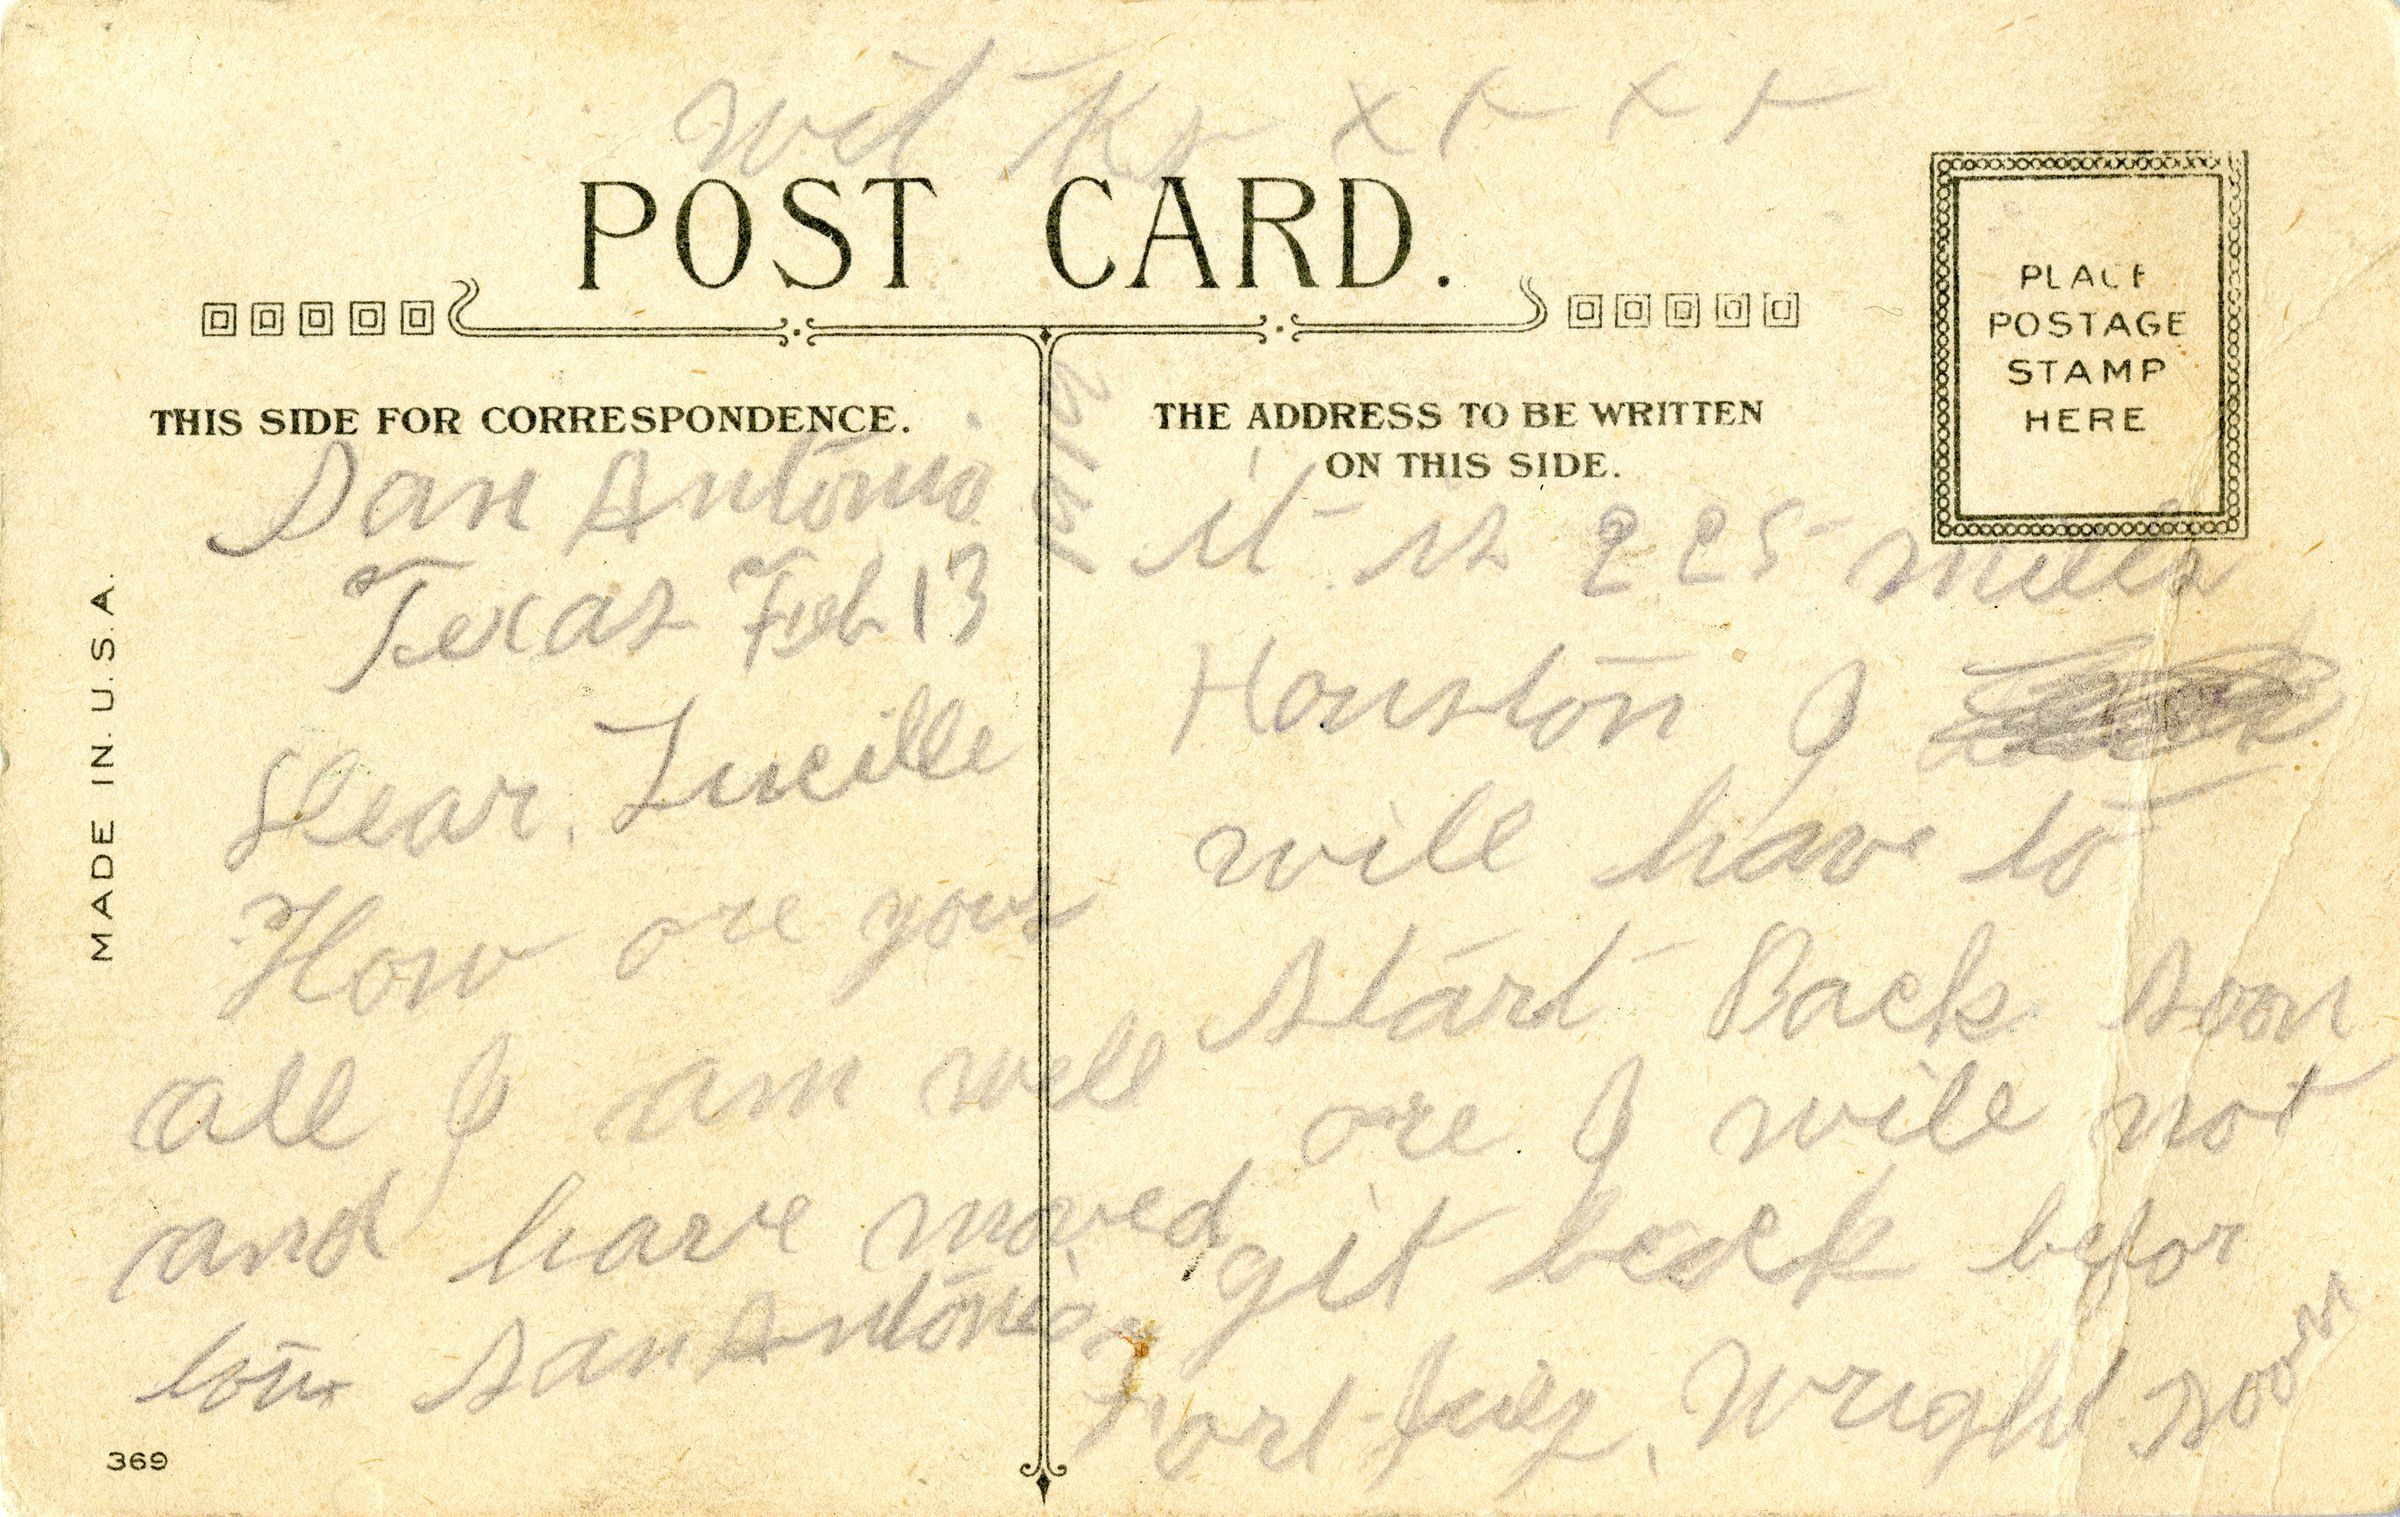 wit Kx x x x x
POST CARD.
PLACE
POSTAGE
STAMP
HERE
THIS SIDE FOR CORRESPONDENCE.
THE ADDRESS TO BE WRITTEN
ON THIS SIDE.
MADE IN U.S.A.
San Antonio
Texas Feb 13
1912
Dear, Lucille
How are you
all I am well
and have moved
San Antonio
369
it is 225 mills
Houston I
will have to
start Back soon
ore I will not
git back befor
Wright soon